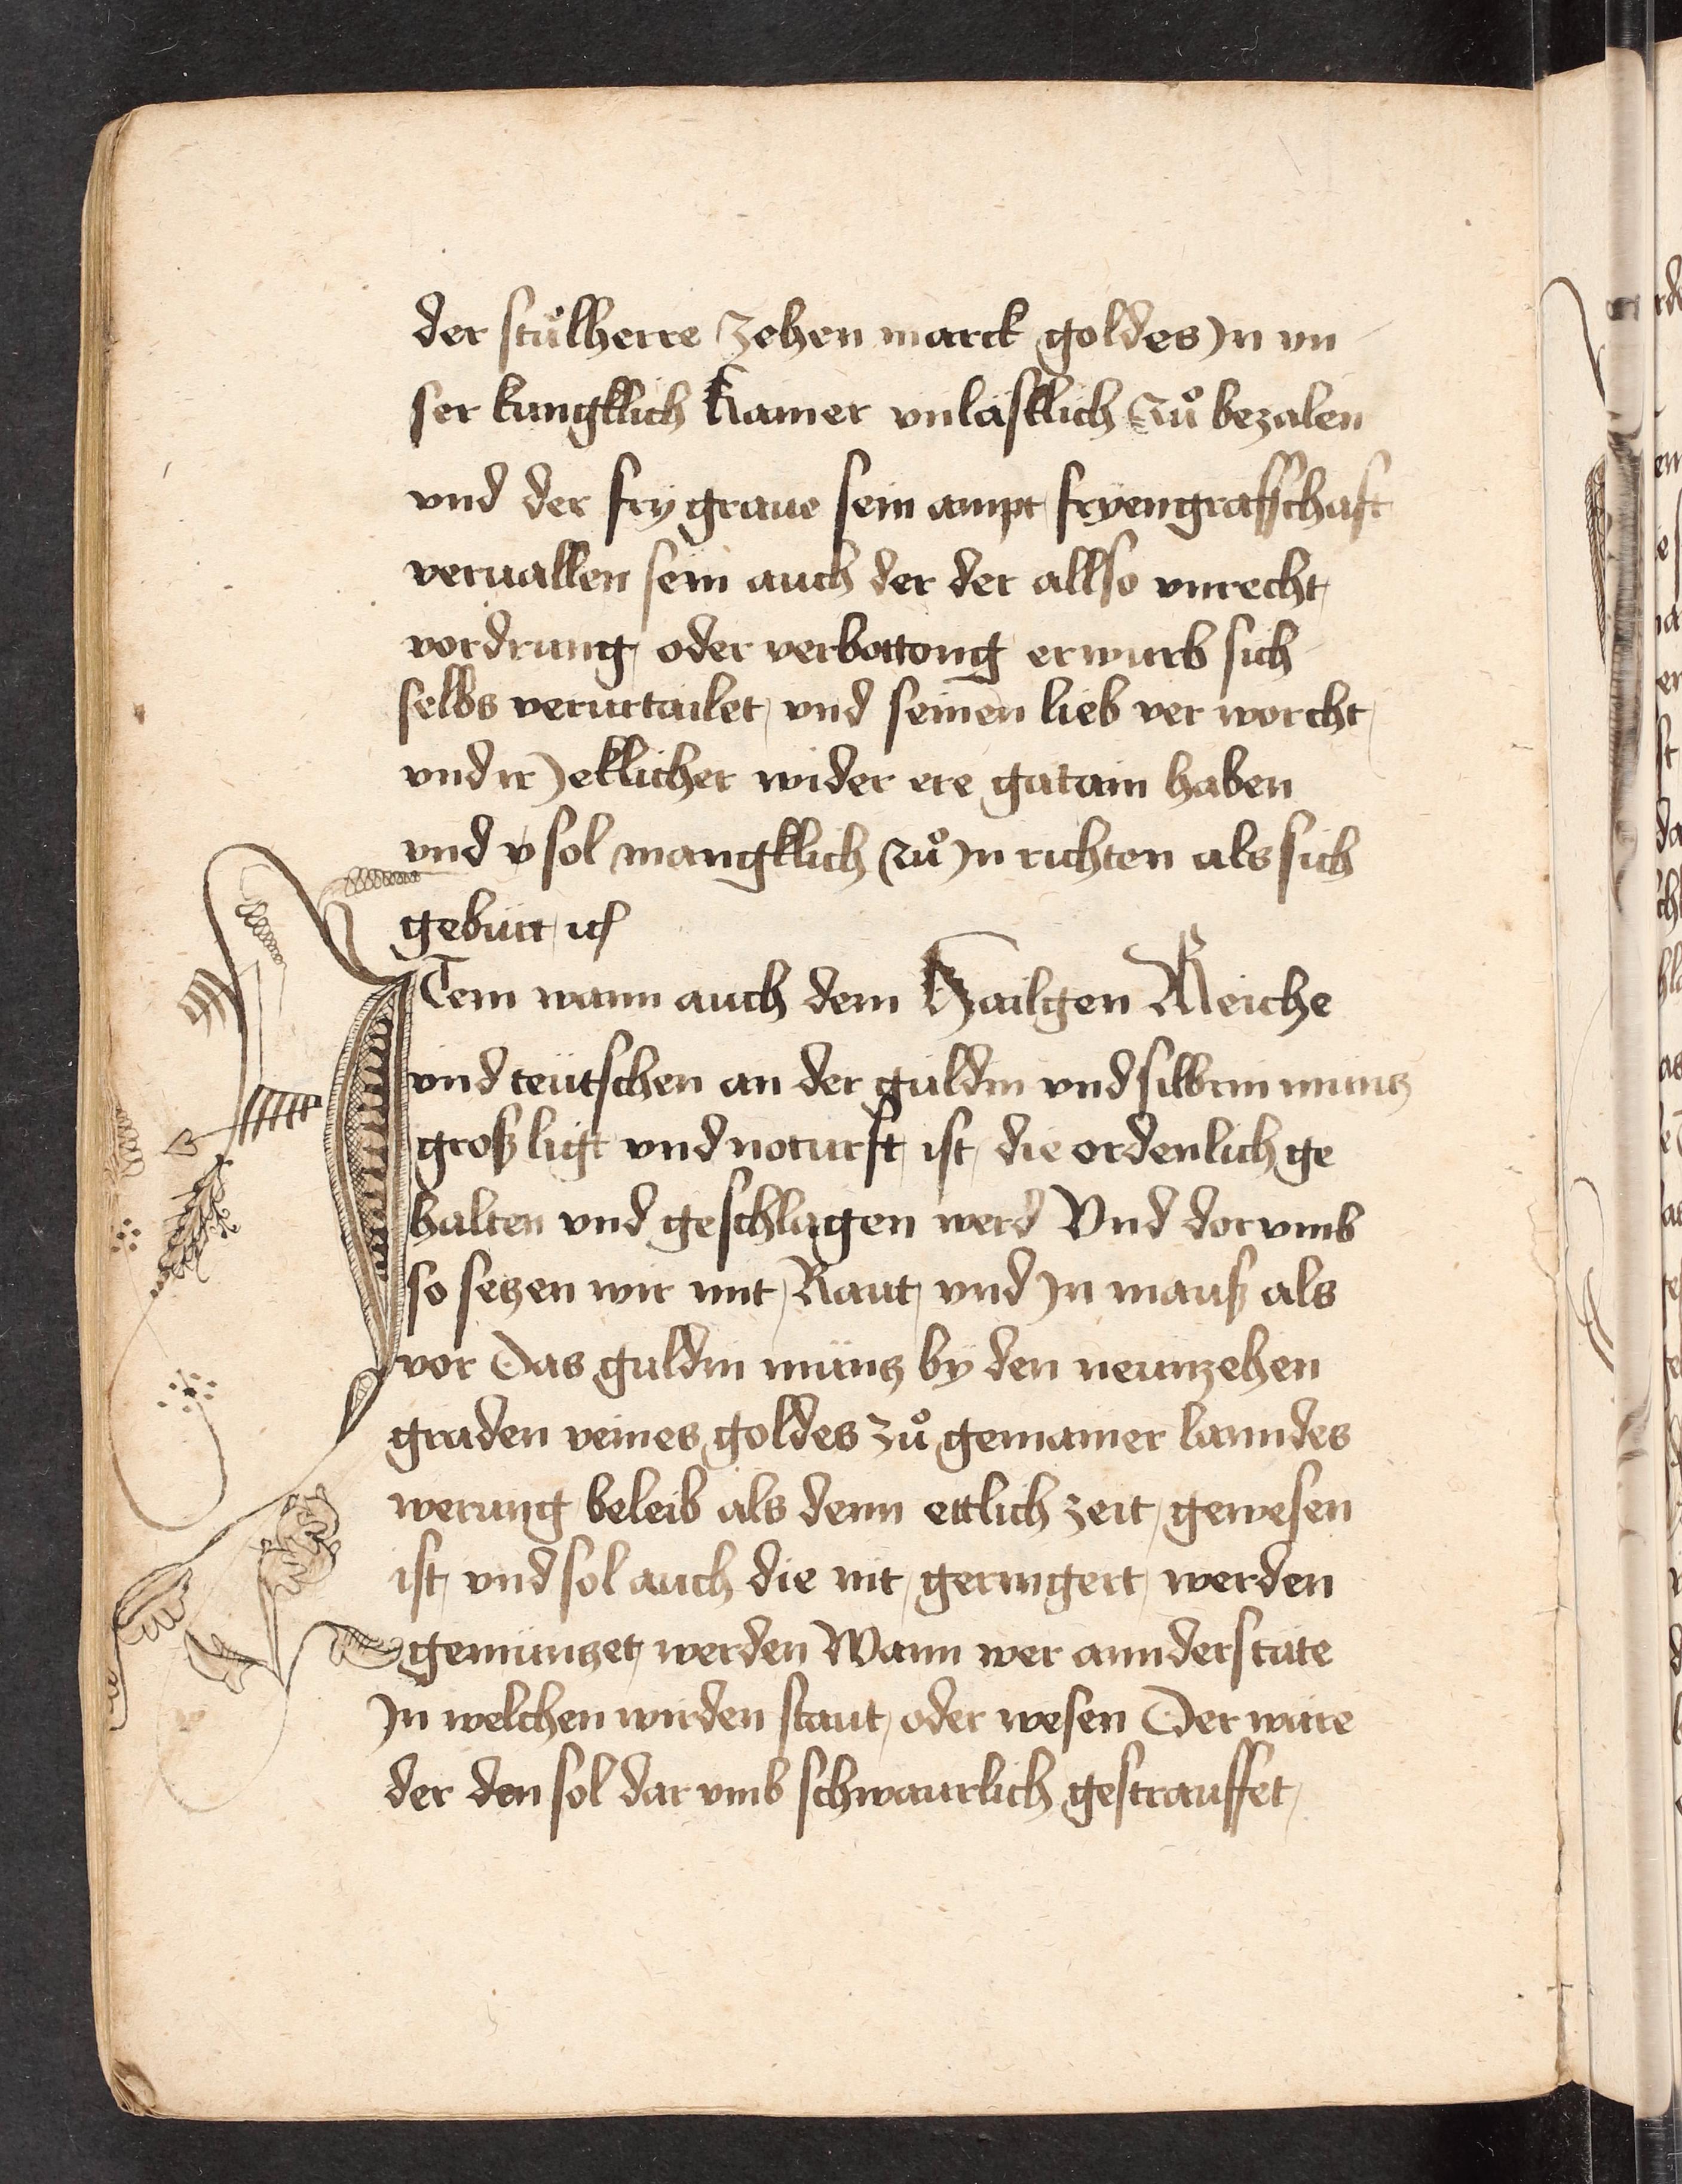 der stůlherre zehen marck goldes Jn vn
ser kungklich Kamer vnläslich zů bezalen
vnd der frÿ graue sein ampt frÿengraffschaft
veruallen sein auch der der allso vnrecht
vordrung oder verbottong erwurb sich
selbs verurtailet vnd seinen lieb ver worcht
vnd Jeklicher wider ere gatain haben
vnd sol mangklich zů Jn richten als sich
gebürt
ITem wann auch dem Hailgen Reiche
vnd teütschen an der guldin vnd silbrin müntz
groß ligt vnd noturft ist die ordenlich ge
halten vnd geschlagen werd Vnd dorvmb
so setzen wir mit Raut vnd Jn mauß als
vor Das guldin müntz bÿ den neünzehen
graden veines goldes zů gemainer lanndes
werung beleib als denn ettlich zeit gewesen
ist vnd sol auch die nit geringert werden
gemüntzet werden Wann wer annderst täte
Jn welchen wirden staut oder wesen Der wäre
der den sol dar vmb schwaurlich gestrauffet